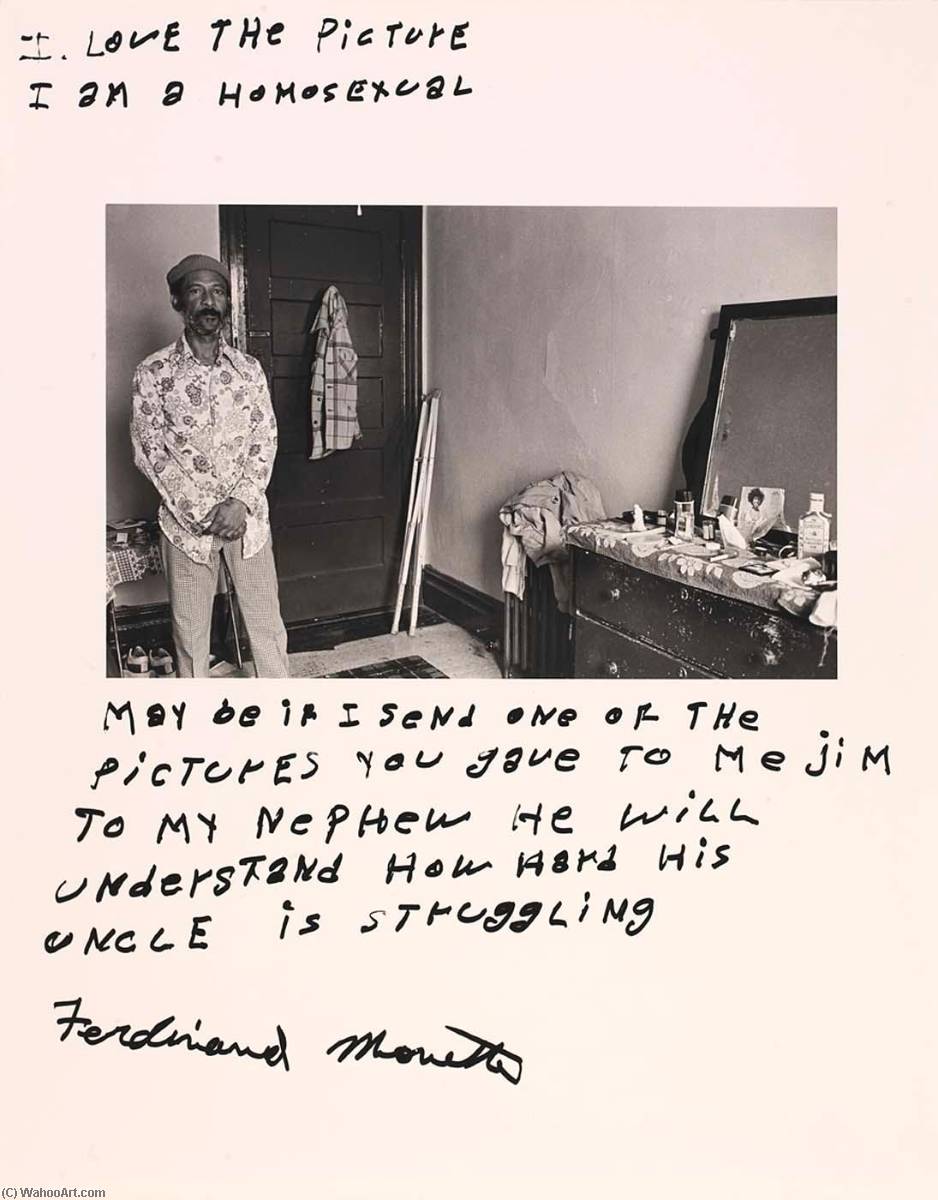 I. LOVE THE PICTURE
I am a HOMOSEXUAL
May be if I send one of THe
PiCTURES you gave TO Me JiM
TO MY NePHew He WiLL
UNderSTaNd How Hard His
UNCLE is STruggLiNg
Ferdinand Monette
(C) WahooArt.com